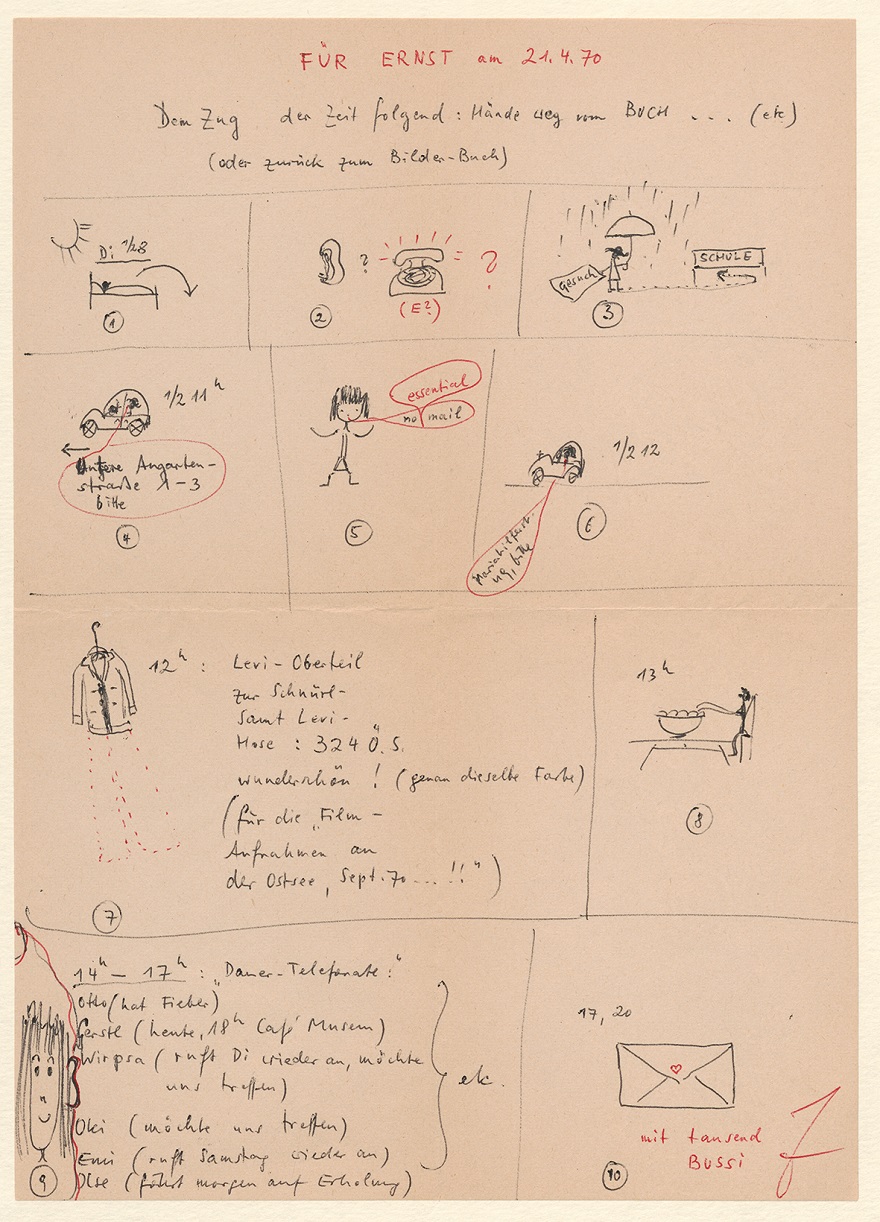 FÜR ERNST am 21.4.70
Dem Zug der Zeit folgend: Hände weg vom BUCH ... (etc)
(oder zurück zum Bilder-Buch)
Di 1/2 8
1
? ?
(E?)
2
Gesuch
SCHULE
3
1/2 11 h
Untere Augarten-
straße 1-3
bitte
4
essential
no mail
5
1/2 12
bitte
6
12 h :
Levi-Oberteil
zur Schnürl-
Samt Levi-
Hose : 324 Ö.S.
wunderschön ! (genau dieselbe Farbe)
(für die „Film-
Aufnahmen an
der Ostsee, Sept. 70 ... !!")
7
13 h
8
14 h – 17 h : „Dauer-Telefonate:"
Otto (hat Fieber)
Gerstl (heute, 18 h Café Museum)
Wirpsa (ruft Di wieder an, möchte
uns treffen)
Oki (möchte uns treffen)
Emi (ruft Samstag wieder an)
Ilse (fährt morgen auf Erholung)
etc.
9
17,20
mit tausend
BUSSI
10